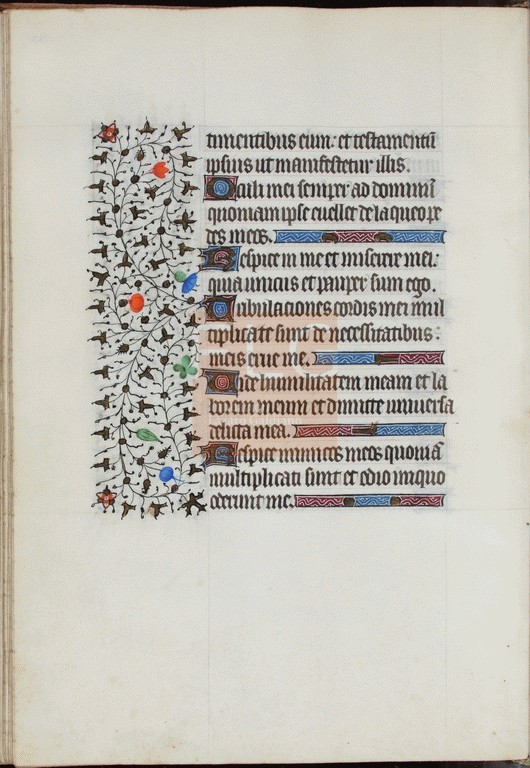 timentibus eum: et testamentū
ipsius ut manifestetur illis.
Oculi mei semper ad dominū
quoniam ipse euellet de laqueo pe
des meos.
Respice in me et miserere mei:
quia unicus et pauper sum ego.
Tribulaciones cordis mei mul
tiplicate sunt de necessitatibus
meis erue me.
Vide humilitatem meam et la
borem meum et dimitte uniuersa
delicta mea.
Respice inimicos meos quoniā
multiplicati sunt et odio iniquo
oderunt me.